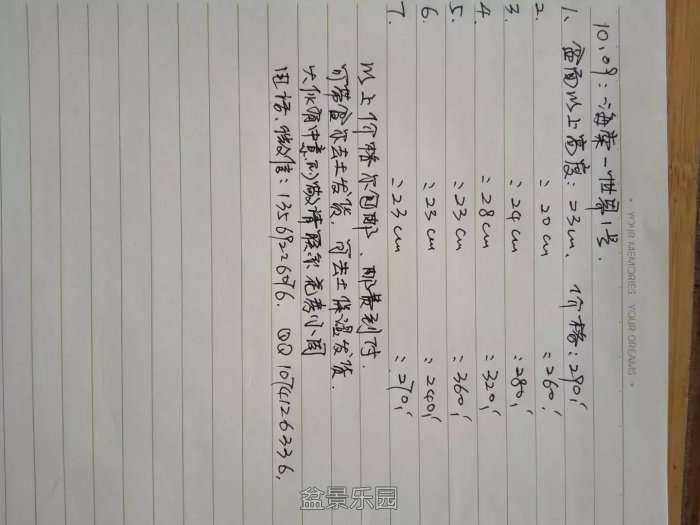 10.09：：海棠一世尊1号.
1、盆面以上高度：23cm、价格：290,
2. ：20cm ：260,
3. ：24cm ：280,
4. ：28cm ：320,
5. ：23cm ：360,
6. ：23cm ：240,
7. ：23cm ：270,
以上价格不包邮、邮费到付.
可带盆不去土发货. 可去土保湿发货.
大伙有中意的敬请联系花卉小园
电话.微信：13569226076. QQ 1074126336,
• YOUR MEMORIES YOUR DREAMS •
盆景乐园